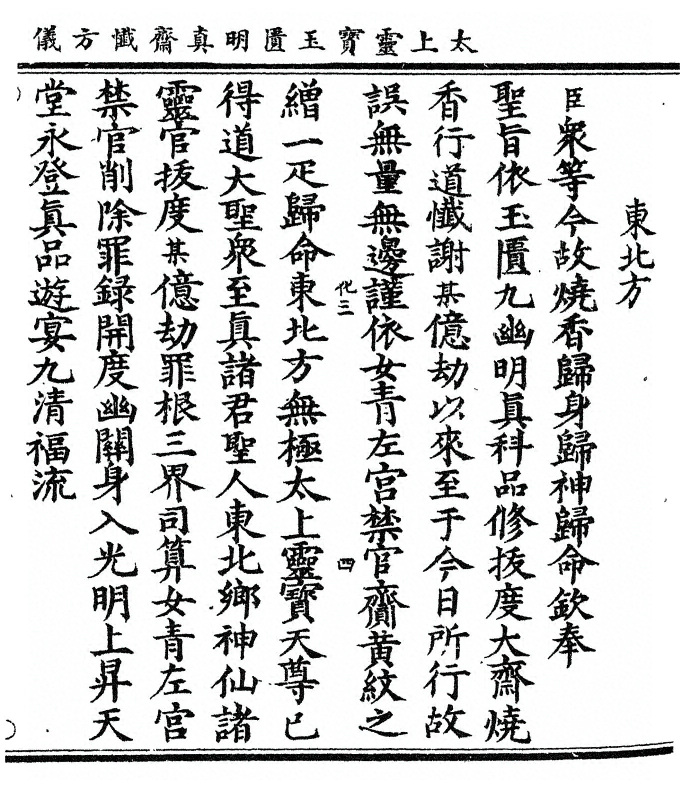 太上靈寶玉匱明真齋懺方儀
東北方
臣衆等今故燒香歸身歸神歸命欽奉
聖旨依玉匱九幽明眞科品修拔度大齋燒
香行道懺謝某億劫以來至于今日所行故
誤無量無邊謹依女青左宫禁官齎黄紋之
化三
四
繒一疋歸命東北方無極太上靈寶天尊已
得道大聖衆至眞諸君聖人東北鄉神仙諸
靈官拔度某億劫罪根三界司算女青左宫
禁官削除罪録開度幽關身入光明上昇天
堂永登眞品遊宴九清福流